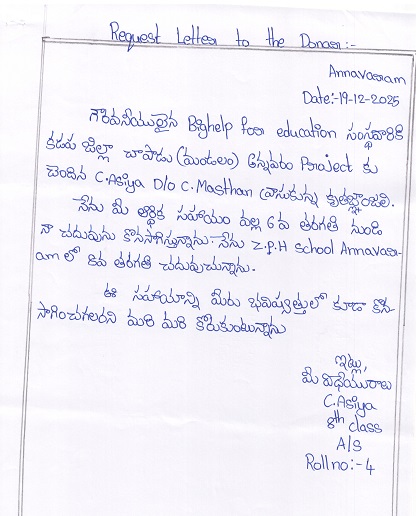 Request Letter to the Donor:-
Annavaram
Date:-19-12-2025
గౌరవనీయులైన Bighelp for education సంస్థవారికి
కడప జిల్లా చాపాడు (మండలం) అన్నవరం Project కు
చెందిన C.Asiya D/o C.Masthan వ్రాసుకున్న కృతజ్ఞతాంజలి.
నేను మీ ఆర్థిక సహాయం వల్ల 6వ తరగతి నుండి
నా చదువును కొనసాగిస్తున్నాను. నేను Z.P.H School Annavar-
am లో 8వ తరగతి చదువుచున్నాను.
ఈ సహాయాన్ని మీరు భవిష్యత్తులో కూడా కొన
సాగించగలరని మరి మరి కోరుకుంటున్నాను
ఇట్లు,
మీ విధేయురాలు
C.Asiya
8th class
A/S
Roll no:-4